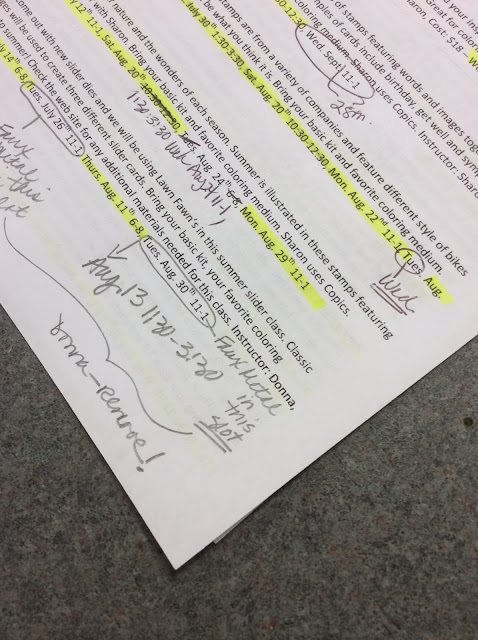 of stamps featuring words and images tog
mples of cards include birthday, get well and symp
oloring medium. Sharon uses Copics. Instructor: Shar
12:30, Wed. Sept 11-1
25th.
stamps are from a variety of companies and feature different style of bikes
be what you think it is. Bring your basic kit and favorite coloring medium.
July 30th 1:30-3:30, Sat. Aug. 20th 10:30-12:30, Mon. Aug. 22nd 11-1, Tues. Aug.
Wed
nature and the wonders of each season. Summer is illustrated in these stamps featuring
with Sharon. Bring your basic kit and favorite coloring medium. Sharon uses Copics.
12, 11-1, Sat. Aug. 20th 10:30-12:30, Tues. Aug. 24th 6-8, Mon. Aug. 29th 11-1
1130-3:30 Wed Aug 24 11-1
come out with new slider dies and we will be using Lawn Fawn's in this summer slider class. Classic
es will be used to create three different slider cards. Bring your basic kit, your favorite coloring
to summer. Check the web site for any additional materials needed for this class. Instructor: Donna,
July 14th 6-8, Tues. July 26th 11-1, Thurs. Aug. 11th 6-8, Tues. Aug. 30th 11-1
Faux
Aug 13 1130-3:30
Faux Metal
in
this
slot
Donna-Remove!